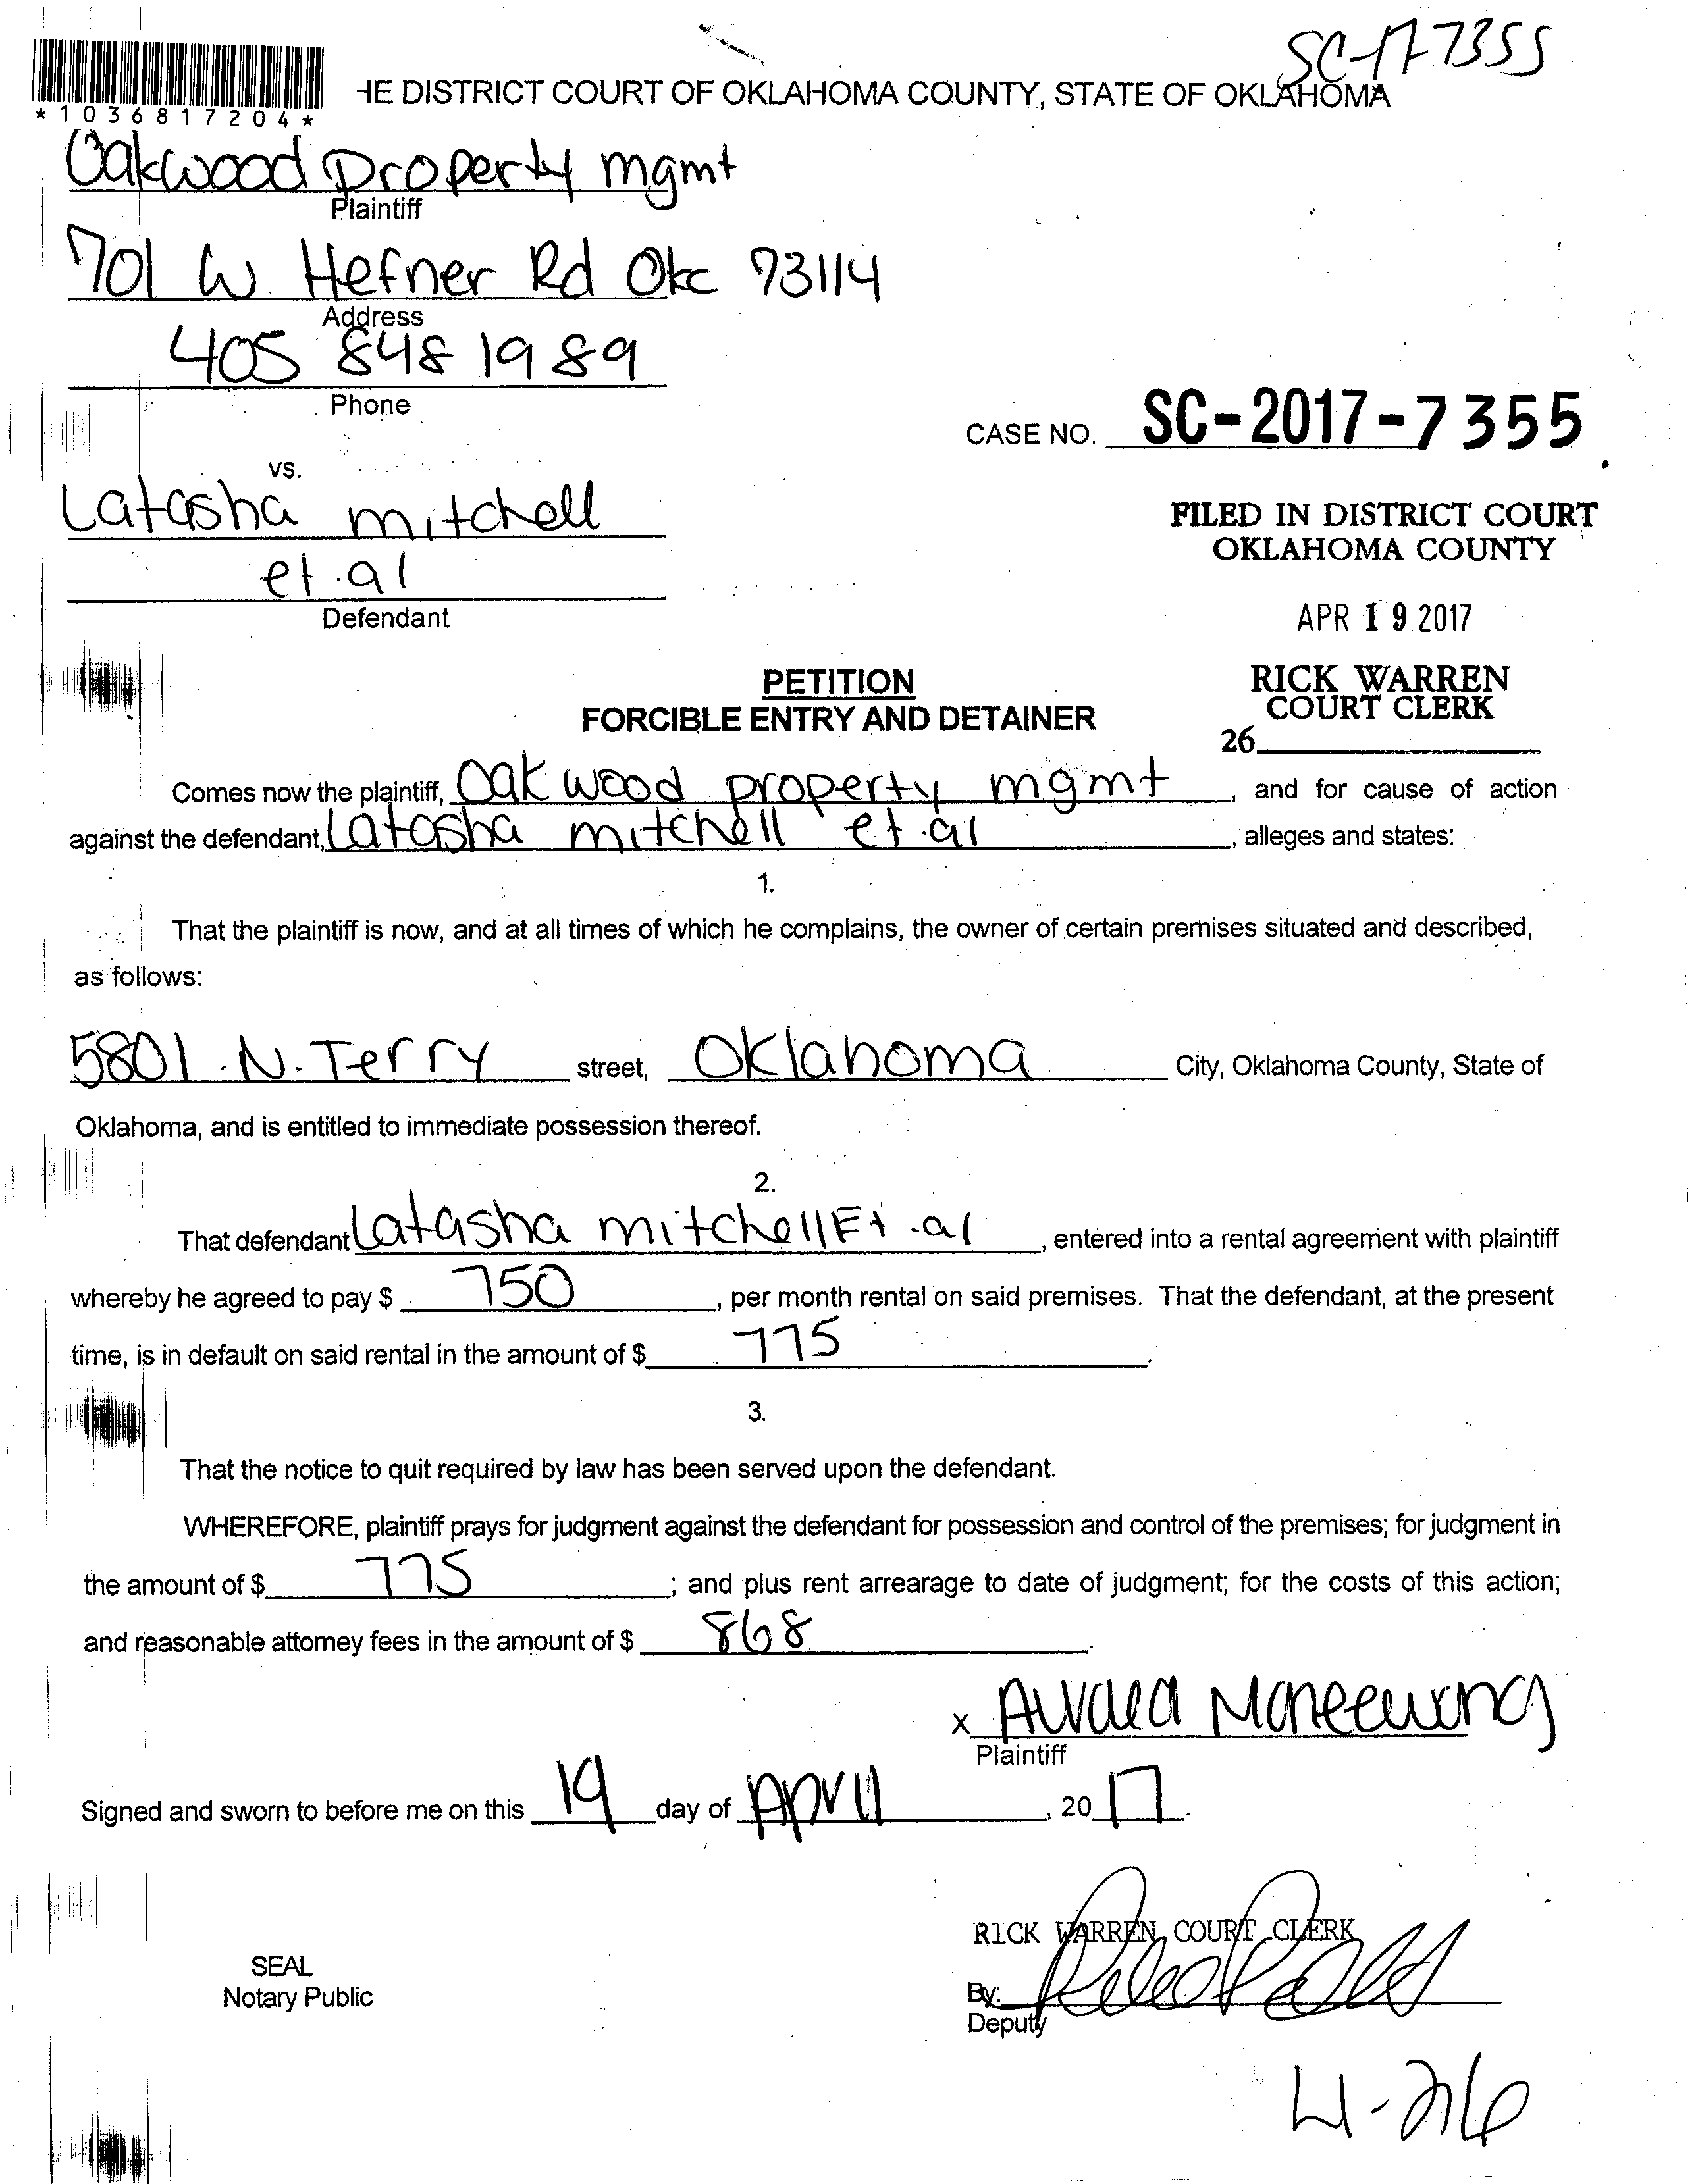 SC-17-7355
*1036817204*
HE DISTRICT COURT OF OKLAHOMA COUNTY, STATE OF OKLAHOMA
Oakwood Property mgmt
Plaintiff
701 W. Hefner Rd Okc 73114
Address
405 848 1989
Phone
CASE NO. SC-2017-7355
vs.
Latasha mitchell
et.al
Defendant
FILED IN DISTRICT COURT
OKLAHOMA COUNTY
APR 19 2017
RICK WARREN
COURT CLERK
26
PETITION
FORCIBLE ENTRY AND DETAINER
Comes now the plaintiff, Oakwood property mgmt, and for cause of action
against the defendant, Latasha mitchell et.al, alleges and states:
1.
That the plaintiff is now, and at all times of which he complains, the owner of certain premises situated and described,
as follows:
5801 N. Terry street, Oklahoma City, Oklahoma County, State of
Oklahoma, and is entitled to immediate possession thereof.
2.
That defendant Latasha mitchell Et.al, entered into a rental agreement with plaintiff
whereby he agreed to pay $ 750, per month rental on said premises. That the defendant, at the present
time, is in default on said rental in the amount of $ 775.
3.
That the notice to quit required by law has been served upon the defendant.
WHEREFORE, plaintiff prays for judgment against the defendant for possession and control of the premises; for judgment in
the amount of $ 775; and plus rent arrearage to date of judgment; for the costs of this action;
and reasonable attorney fees in the amount of $ 868.
x
Plaintiff
Signed and sworn to before me on this 19 day of April, 2017.
RICK WARREN, COURT CLERK
SEAL
Notary Public
By:
Deputy
4-26